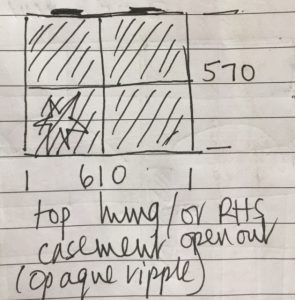 570
610
top hung/or RHS
casement open out
(opaque ripple)